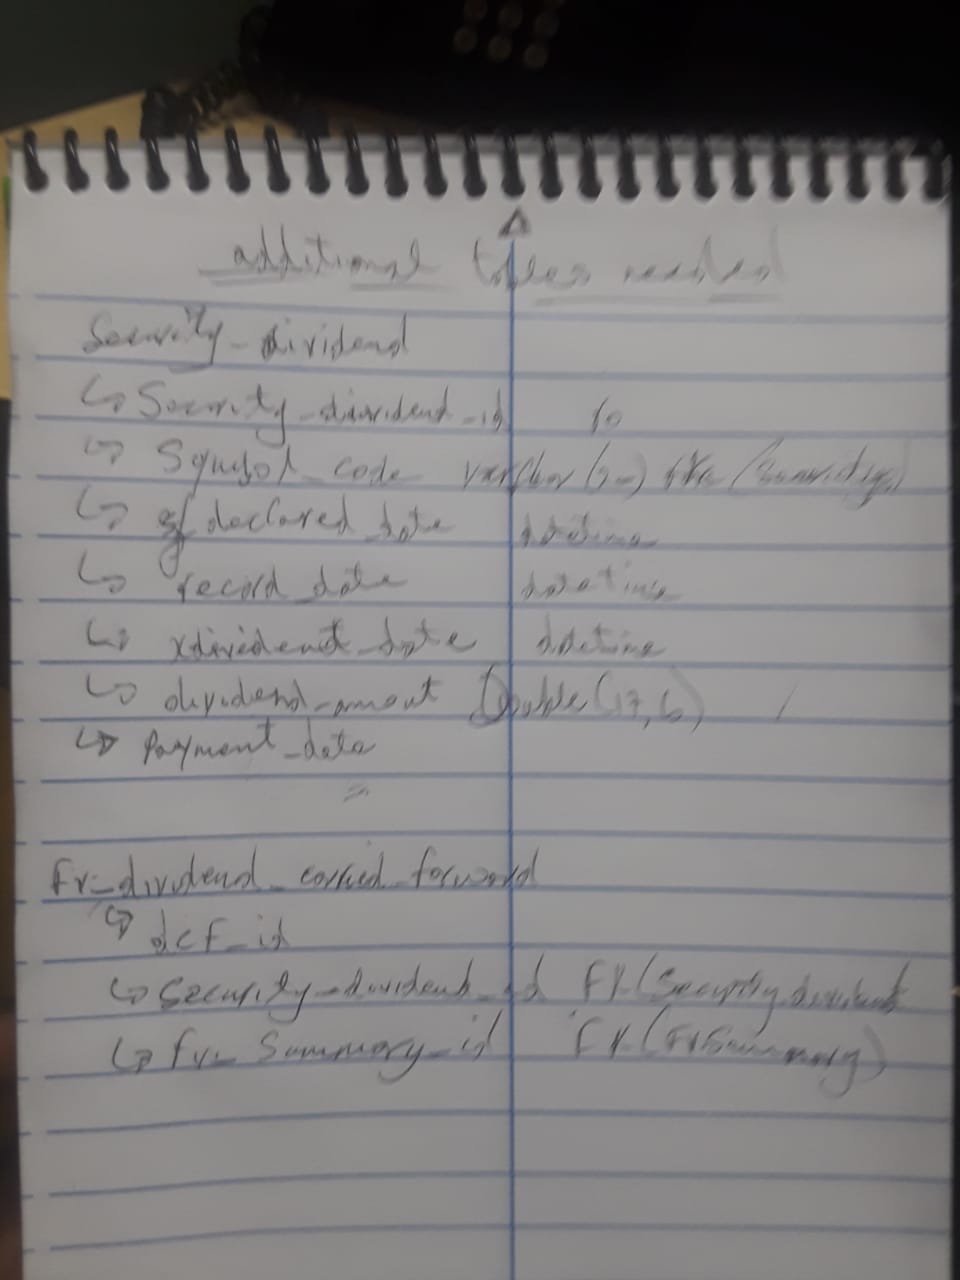 additional tables needed
Security_dividend
↳ Security_dividend_id
↳ Symbol_code varchar ( ) FK (Security)
↳ declared_date datetime
↳ record_date datetime
↳ xdividend_date datetime
↳ dividend_amout Double(17,6)
↳ Payment_date
=
Fv_dividend_carried_forward
↳ dcf_id
↳ Security_dividend_id FK(Security_dividend
↳ fv_Summary_id FK(FvSummary)